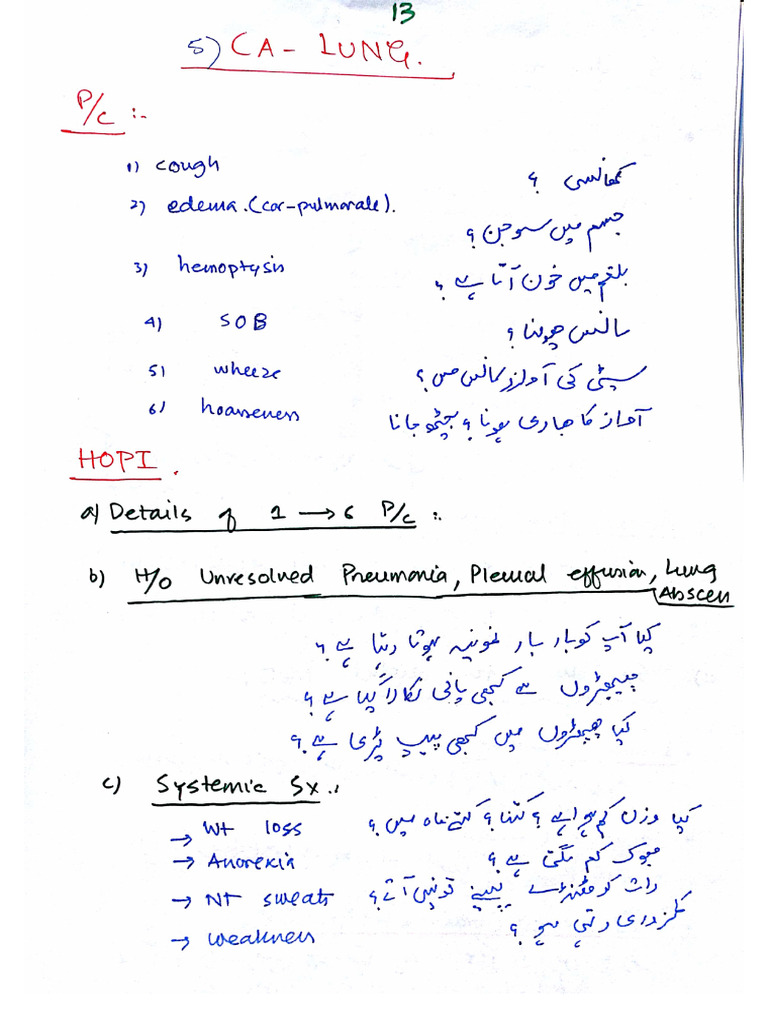 13
5) CA - LUNG.
P/C :-
1) cough کھانسی ؟
2) edema.(cor-pulmonale). جسم میں سوجن ؟
3) hemoptysis بلغم میں خون آتا ہے ؟
4) SOB سانس پھولنا ؟
5) wheeze سیٹی کی آواز سانس میں ؟
6) hoarseness آواز کا بھاری ہونا ؟ بیٹھ جانا
HOPI .
a) Details of 1 → 6 P/C :.
b) H/o Unresolved Pneumonia, Pleural effusion, Lung
Abscen
کیا آپ کو بار بار نمونیہ ہوتا رہتا ہے ؟
پھیپھڑوں سے کبھی پانی نکالا گیا ہے ؟
کیا پھیپھڑوں میں کبھی پیپ پڑی ہے ؟
c) Systemic Sx .:
→ Wt loss کیا وزن کم ہوا ہے ؟ کتنا ؟ کتنے ماہ میں ؟
→ Anorexia بھوک کم لگتی ہے ؟
→ Nt sweats رات کو ٹھنڈے پسینے تو نہیں آتے ؟
→ weakness کمزوری رہتی ہو ؟